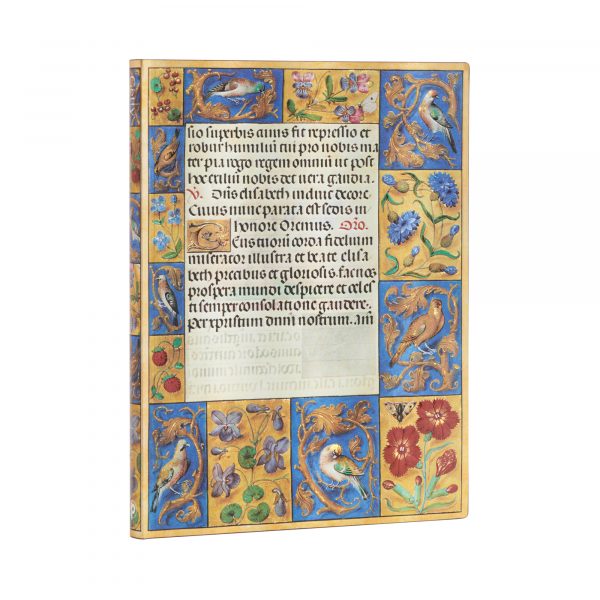 sio superbis cuius fit repressio et
robur humiliū tu pro nobis ma
ter pia rogo regem omniū ut post
hoc exiliū nobis det vera gaudia.
V. Dn̄s elisabeth induit decore
Cuius nunc parata est sedis in
honore Oremus. Orō.
Deus tuorū corda fidelium
miserator illustra et beate elisa
beth precibus et gloriosis. fac nos
prospera mundi despicere et celes
ti semper consolatione gaudere.
Per xpristum dnm̄ nostrum. am̄